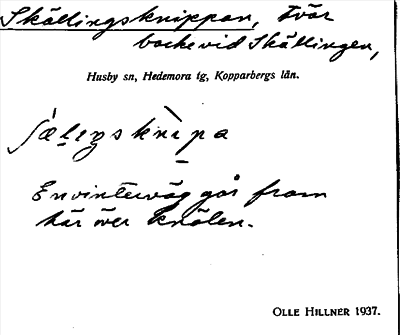 Skällingsknippan, tvär
backe vid Skällingen,
Husby sn, Hedemora tg, Kopparbergs län.
En vinterväg går fram
här över knölen.
OLLE HILLNER 1937.